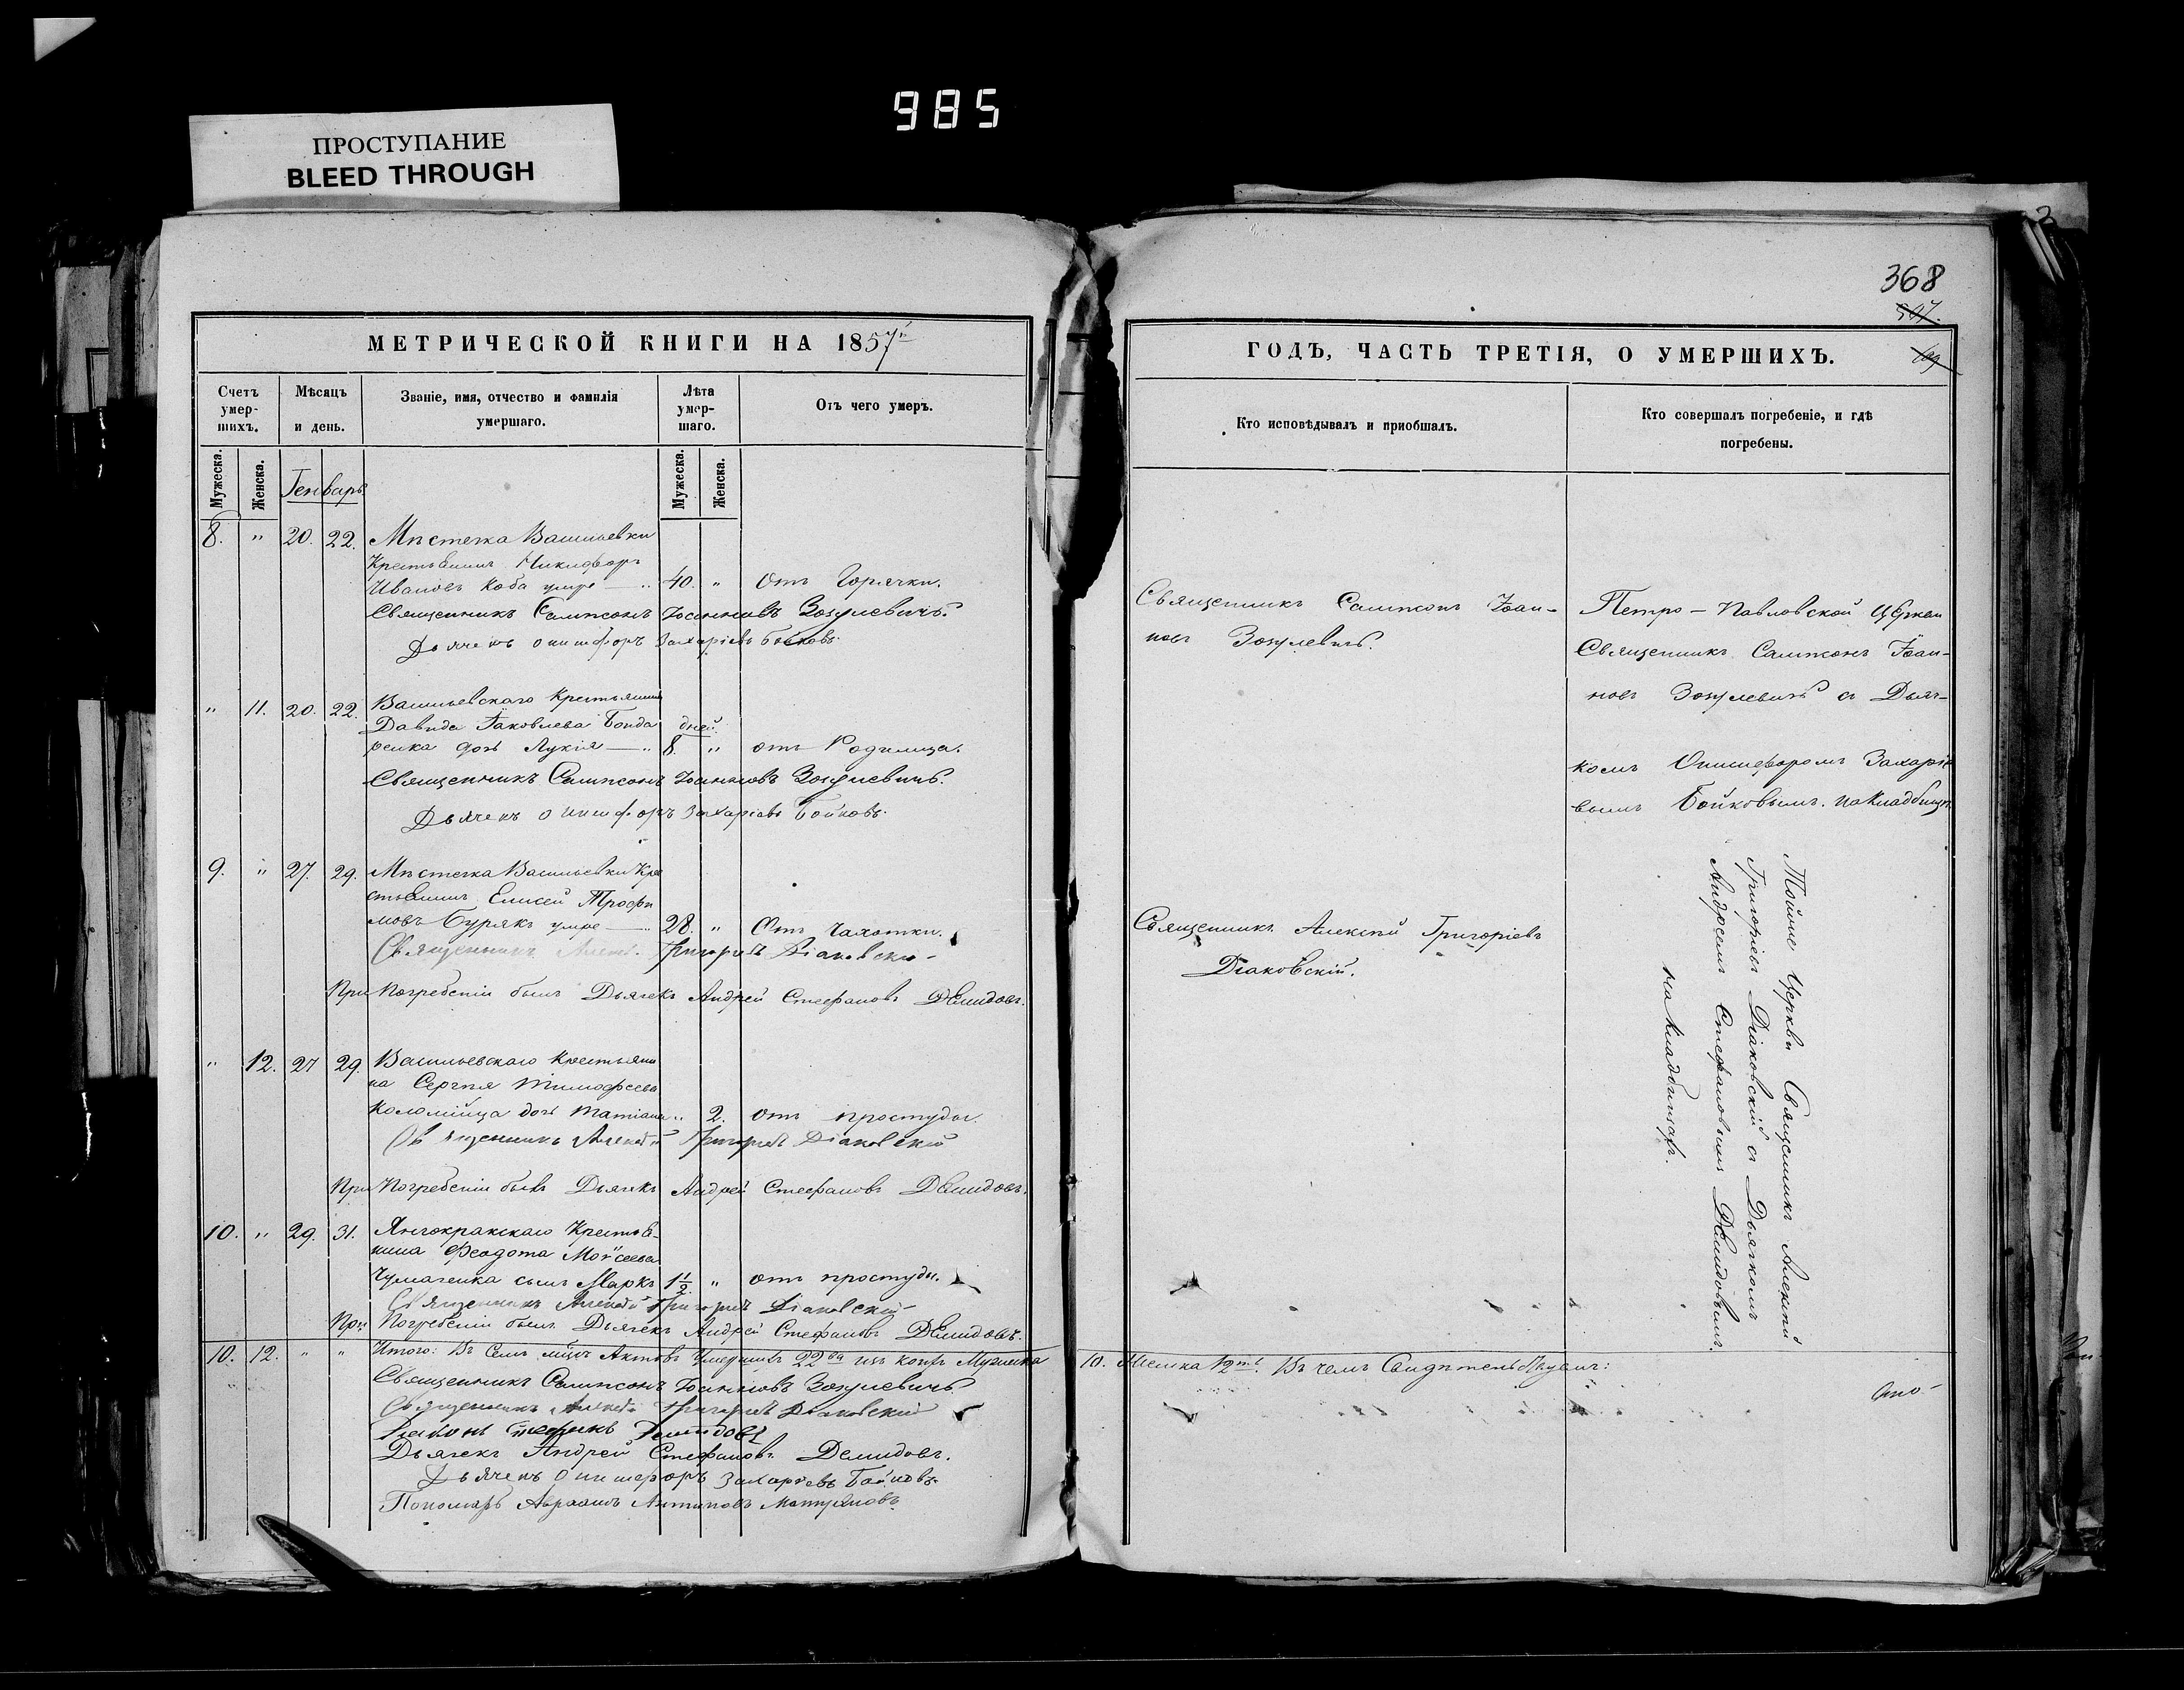 985
ПРОСТУПАНИЕ
BLEED THROUGH
МЕТРИЧЕСКОЙ КНИГИ НА 1857й
Счетъ умер-шихъ.
Мѣсяцъ и день.
Званіе, имя, отчество и фамилія умершаго.
Лѣта умер-шаго.
Отъ чего умеръ.
Мужеска.
Женска.
Генварь
Мужеска.
Женска.
8. " 20. 22. Мѣстечка Васильевки
Крестьянинъ Никифоръ
Ивановъ Коба умре — " 40. " Отъ Горячки.
Священникъ Сампсонъ Іоанновъ Зозулевичъ.
Дьячекъ Онисифоръ Захаріевъ Бойковъ.
" 11. 20. 22. Васильевскаго Крестьянина
Давида Іаковлева Бонда дней
ренка дочь Лукія — " 8. " отъ Родимца.
Священникъ Сампсонъ Іоанновъ Зозулевичъ.
Дьячекъ Онисифоръ Захаріевъ Бойковъ.
9. " 27. 29. Мѣстечка Васильевки Кре
стьянинъ Елисей Трофи
мовъ Бурякъ умре — " 28. " Отъ Чахотки.
Священникъ Алекс. Григорьевъ Діаковскій
При Погребеніи былъ Дьячекъ Андрей Стефановъ Демидовъ.
" 12. 27 29. Васильевскаго Крестьяни
на Сергѣя Тимофеева
Коломійца дочь Татіана " 2. отъ простуды.
Священникъ Алексѣй Григорьевъ Діаковскій
При Погребеніи былъ Дьячекъ Андрей Стефановъ Демидовъ.
10. " 29. 31. Янчокракскаго Крестья-
нина Феодота Мойсеева
Чумаченка сынъ Маркъ 1 1/2 " отъ простуды.
Священникъ Алексѣй Григорьевъ Діаковскій
При Погребеніи былъ Дьячекъ Андрей Стефановъ Демидовъ.
10. 12. " " Итого: Въ Семъ мцѣ Актовъ Умершихъ 22ва изъ коихъ Мужеска
Священникъ Сампсонъ Іоанновъ Зозулевичъ
Священникъ Алексѣй Григорьевъ Діаковскій
Демидовъ
Дьячекъ Андрей Стефановъ Демидовъ.
Дьячекъ Онисифоръ Захаріевъ Бойковъ.
Пономарь Авраамъ Антиповъ
368
ГОДЪ, ЧАСТЬ ТРЕТІЯ, О УМЕРШИХЪ.
Кто исповѣдывалъ и приобщалъ.
Кто совершалъ погребеніе, и гдѣ погребены.
Священникъ Сампсонъ Іоан-
новъ Зозулевичъ.
Петро-Павловской Церкви
Священникъ Сампсонъ Іоан-
новъ Зозулевичъ съ Дьяч-
комъ Онисифоромъ Захаріе
вымъ Бойковымъ. На Кладбищѣ
Священникъ Алексѣй Григоріевъ
Діаковскій.
Тойже Церкви Священникъ Алексѣй
Григоріевъ Діаковскій съ Дьячкомъ
Андреемъ Стефановымъ Демидовымъ.
на Кладбищахъ.
10. Женска 12ть. Въ чемъ Свидѣтельствуемъ:
что